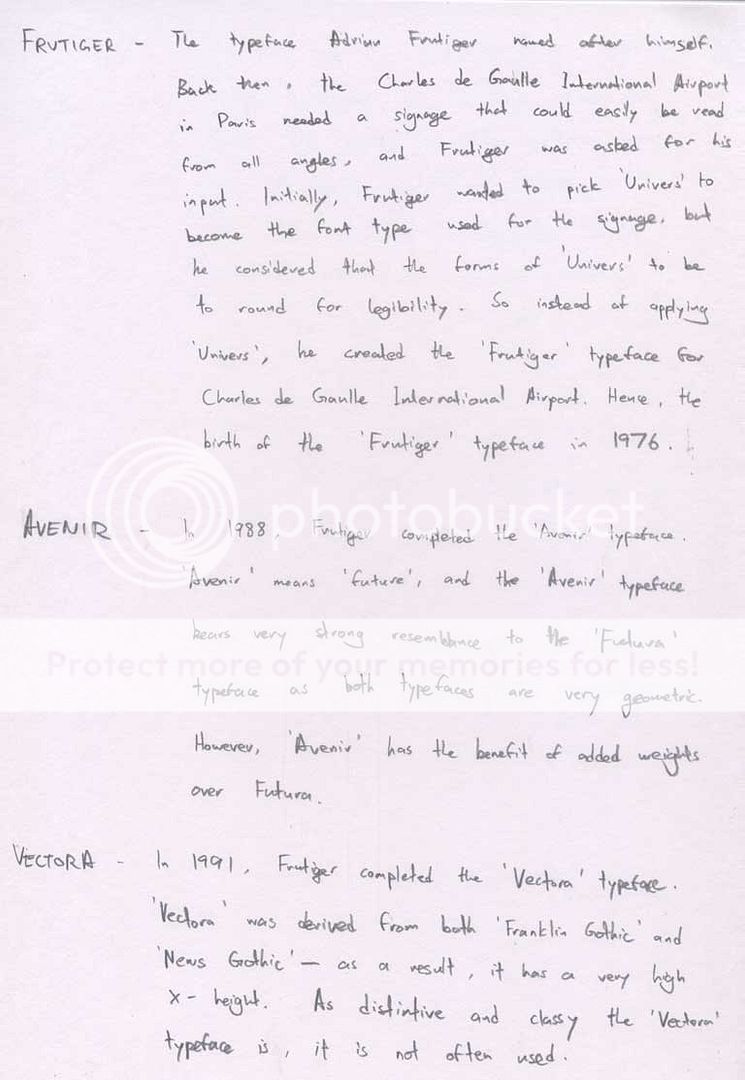 FRUTIGER - The typeface Adrian Frutiger named after himself.
Back then, the Charles de Gaulle International Airport
in Paris needed a signage that could easily be read
from all angles, and Frutiger was asked for his
input. Initially, Frutiger wanted to pick 'Univers' to
become the font type used for the signage, but
he considered that the forms of 'Univers' to be
to round for legibility. So instead of applying
'Univers', he created the 'Frutiger' typeface for
Charles de Gaulle International Airport. Hence, the
birth of the 'Frutiger' typeface in 1976.
photobucket
AVENIR - In 1988, Frutiger completed the 'Avenir' typeface.
'Avenir' means 'future', and the 'Avenir' typeface
bears very strong resemblance to the 'Futura'
Protect more of your memories for less!
typeface as both typefaces are very geometric.
However, 'Avenir' has the benefit of added weights
over Futura.
VECTORA - In 1991, Frutiger completed the 'Vectora' typeface.
'Vectora' was derived from both 'Franklin Gothic' and
'News Gothic' — as a result, it has a very high
x-height. As distintive and classy the 'Vectora'
typeface is, it is not often used.